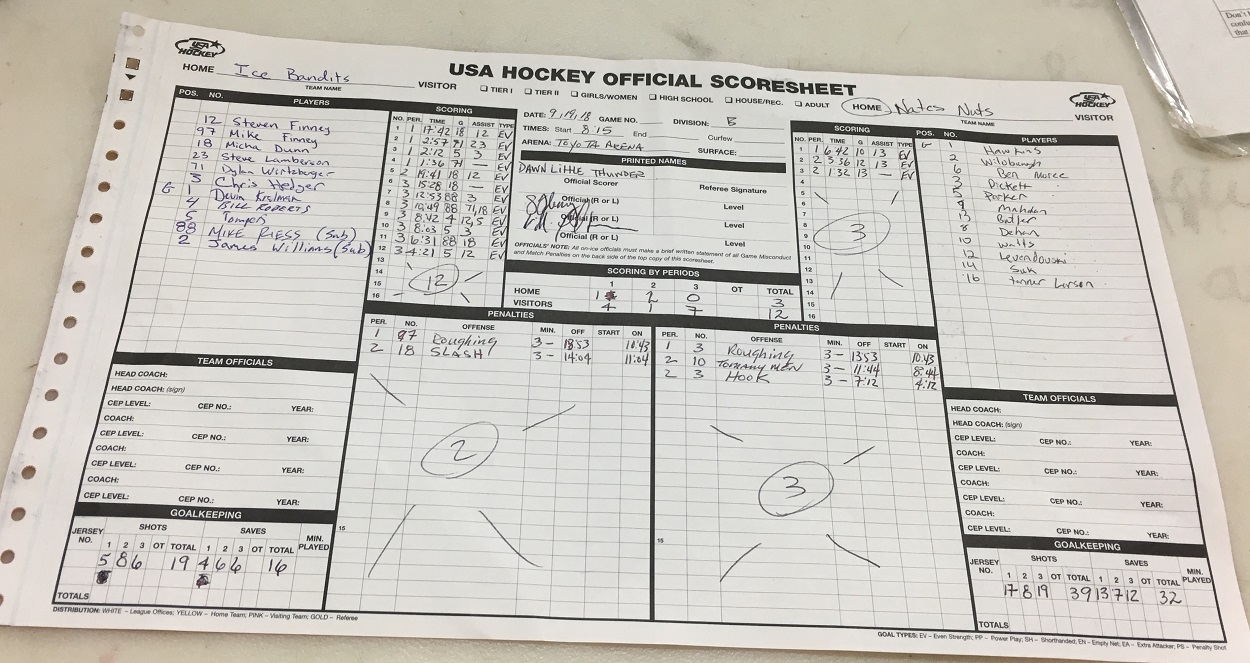 USA HOCKEY
USA HOCKEY OFFICIAL SCORESHEET
HOME Ice Bandits VISITOR
TEAM NAME
TIER I TIER II GIRLS/WOMEN HIGH SCHOOL HOUSE/REC. ADULT
HOME Nates Nuts VISITOR
TEAM NAME
USA HOCKEY
POS. NO. PLAYERS
12 Steven Finney
97 Mike Finney
18 Micha Dunn
23 Steve Lamberson
71 Dylan Wirtzburger
3 Chris Hedger
G 1 Devin Krolman
4 BILL ROBERTS
5 Tompen
88 MIKE RIESS (Sub)
2 James Williams (Sub)
SCORING
NO. PER. TIME G ASSIST TYPE
1 1 17:42 18 12 EV
2 1 2:57 71 23 EV
3 1 2:12 5 3 EV
4 1 1:36 71 — EV
5 2 19:41 18 12 EV
6 3 15:28 18 — EV
7 3 12:53 88 3 EV
8 3 10:49 88 71,18 EV
9 3 8:42 4 12,5 EV
10 3 8:03 5 3 EV
11 3 6:31 88 18 EV
12 3 4:21 5 12 EV
13
14
15
16
12
DATE: 9/19/18 GAME NO. DIVISION: B
TIMES: Start 8:15 End Curfew
ARENA: TOYOTA ARENA SURFACE:
PRINTED NAMES
DAWN LITTLE THUNDER
Official Scorer Referee Signature
Official (R or L) Level
Official (R or L) Level
Official (R or L) Level
OFFICIALS' NOTE: All on-ice officials must make a brief written statement of all Game Misconduct
and Match Penalties on the back side of the top copy of this scoresheet.
SCORING BY PERIODS
1 2 3 OT TOTAL
HOME 1 2 0 3
VISITORS 4 1 7 12
SCORING
NO. PER. TIME G ASSIST TYPE
1 1 6:42 10 13 EV
2 2 3:36 12 13 EV
3 2 1:32 13 — EV
4
5
6
7
8
9
10
11
12
13
14
15
16
3
POS. NO. PLAYERS
G 1 Hawkins
2 Wilobaugh
6 Ben Moree
3 Pickett
5 Parker
9 Mahdon
13 Badjer
8 Dehan
10 Watts
12 Levendowski
14 Suk
16 Tanner Larson
PENALTIES
PER. NO. OFFENSE MIN. OFF START ON
1 97 Roughing 3 – 18:53 10:43
2 18 SLASH 3 – 14:04 11:04
2
PENALTIES
PER. NO. OFFENSE MIN. OFF START ON
1 3 Roughing 3 – 13:53 10:43
2 10 TOMANY MEN 3 – 11:44 8:44
2 3 HOOK 3 – 7:12 4:12
3
15
15
TEAM OFFICIALS
HEAD COACH:
HEAD COACH: (sign)
CEP LEVEL: CEP NO.: YEAR:
COACH:
CEP LEVEL: CEP NO.: YEAR:
COACH:
CEP LEVEL: CEP NO.: YEAR:
COACH:
CEP LEVEL: CEP NO.: YEAR:
GOALKEEPING
JERSEY NO. SHOTS SAVES MIN. PLAYED
1 2 3 OT TOTAL 1 2 3 OT TOTAL
5 8 6 19 4 6 6 16
TOTALS
TEAM OFFICIALS
HEAD COACH:
HEAD COACH: (sign)
CEP LEVEL: CEP NO.: YEAR:
COACH:
CEP LEVEL: CEP NO.: YEAR:
COACH:
CEP LEVEL: CEP NO.: YEAR:
COACH:
CEP LEVEL: CEP NO.: YEAR:
GOALKEEPING
JERSEY NO. SHOTS SAVES MIN. PLAYED
1 2 3 OT TOTAL 1 2 3 OT TOTAL
17 8 19 39 13 7 12 32
TOTALS
DISTRIBUTION: WHITE – League Offices; YELLOW – Home Team; PINK – Visiting Team; GOLD – Referee
GOAL TYPES: EV – Even Strength; PP – Power Play; SH – Shorthanded; EN – Empty Net; EA – Extra Attacker; PS – Penalty Shot